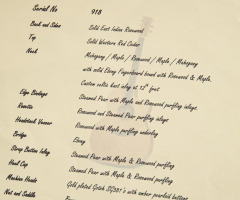 Serial No 918
Back and Sides Solid East Indian Rosewood
Top Solid Western Red Cedar
Neck Mahogany / Maple / Rosewood / Maple / Mahogany
with solid Ebony fingerboard bound with Rosewood & Maple.
Custom celtic knot inlay at 12th fret
Edge Bindings Steamed Pear with Maple and Rosewood purfling inlays.
Rosette Rosewood and Steamed Pear purfling inlays
Headstock Veneer Rosewood with Maple purfling underlay
Bridge Ebony
String Button Inlay Steamed Pear with Maple & Rosewood purfling
Heel Cap Steamed Pear with Maple & Rosewood purfling
Machine Heads Gold plated Gotoh SG381's with amber pearloid buttons
Nut and Saddle